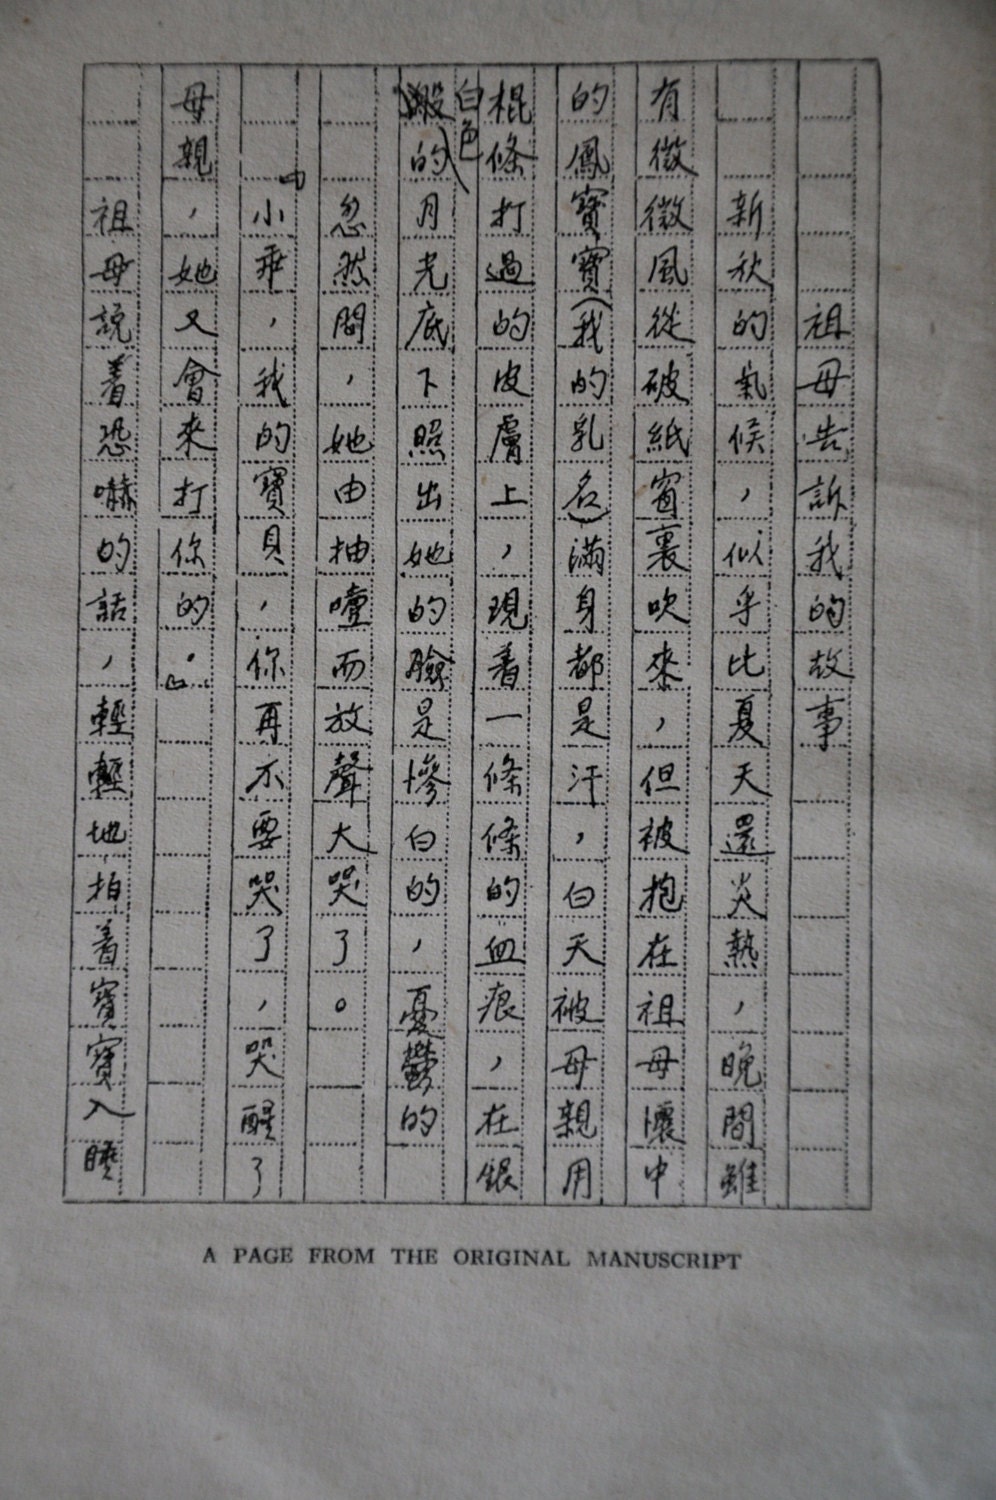 祖母告訴我的故事
新秋的氣候，似乎比夏天還炎熱，晚間雖
有微微風從破紙窗裏吹來，但被抱在祖母懷中
的鳳寶寶（我的乳名）滿身都是汗，白天被母親用
棍條打過的皮膚上，現着一條條的血痕，在銀
白色
的月光底下照出她的臉是慘白的，憂鬱的
忽然間，她由抽噎而放聲大哭了。
『小乖，我的寶貝，你再不要哭了，哭醒了
母親，她又會來打你的。』
祖母說着恐嚇的話，輕輕地拍着寶寶入睡
A PAGE FROM THE ORIGINAL MANUSCRIPT